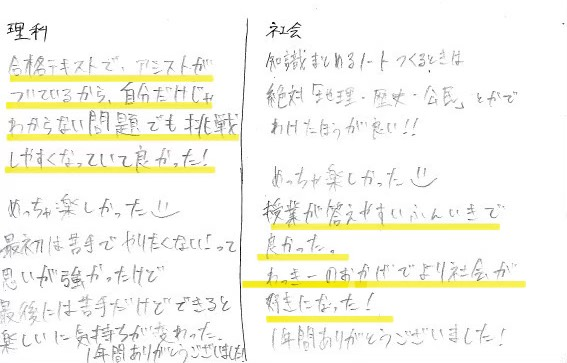 理科
合格テキストで、アシストが
ついているから、自分だけじゃ
わからない問題でも挑戦
しやすくなっていて良かった!
めっちゃ楽しかった
最初は苦手でやりたくない!って
思いが強かったけど
最後には苦手だけどできると
楽しいに気持ちが変わった。
1年間ありがとうございました!
社会
知識まとめるノートつくるときは
絶対「地理・歴史・公民」とかで
わけたほうが良い!!
めっちゃ楽しかった
授業が答えやすいふんいきで
良かった。
わっきーのおかげでより社会が
好きになった!
1年間ありがとうございました!